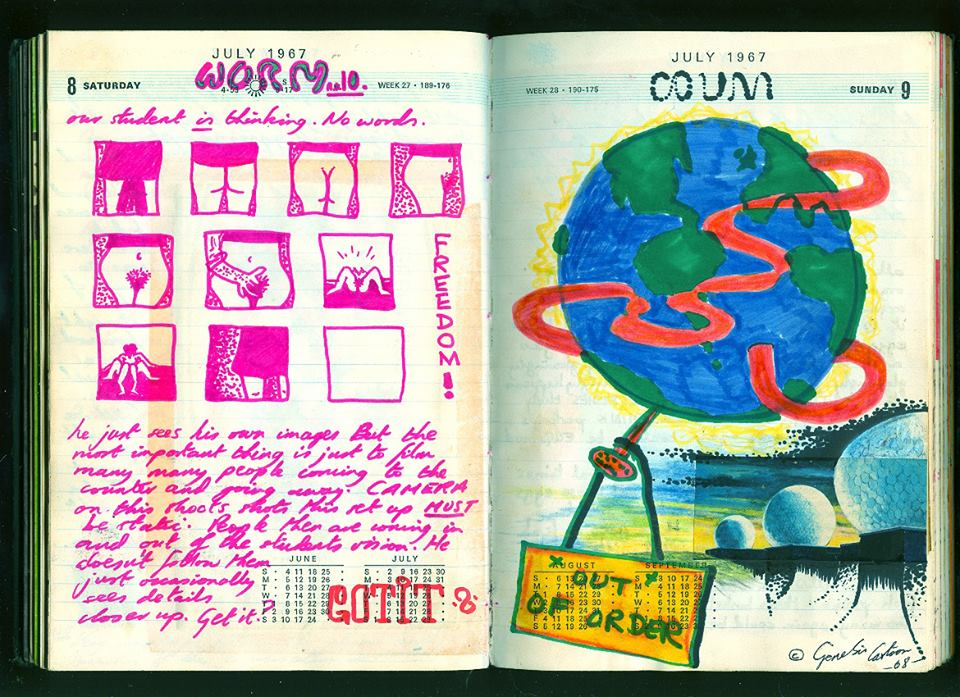 JULY 1967
8 SATURDAY
WORM no 10.
WEEK 27 • 189-176
our student is thinking. No words.
FREEDOM!
he just sees his own images But the
most important thing is just to film
many many people coming to the
counter and going away. CAMERA
on this shoots shots this set up MUST
be static. People then are coming in
and out of the students vision. He
doesn't follow them
just occasionally
sees details
closer up. Get it?
JUNE
S • 4 11 18 25
M • 5 12 19 26
T • 6 13 20 27
W • 7 14 21 28
8 15 22 29
F 2 9 16 23 30
S 3 10 17 24
JULY
S • 2 9 16 23 30
M • 3 10 17 24 31
GOTiT
JULY 1967
WEEK 28 • 190-175
COUM
SUNDAY 9
AUGUST
SEPTEMBER
OUT
OF ORDER
©